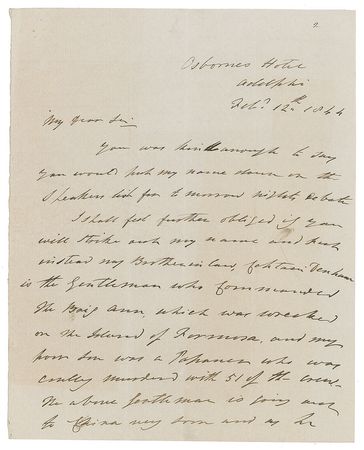 2
Osbornes Hotel
Adelphi
Feby 12th 1844
My Dear Sir
You was kind enough to say
you would put my name down on the
Speakers list for to morrow nights debate
I shall feel further obliged if you
will strike out my name and put
instead my Brother in law, Captain Denham
is the Gentleman who Commanded
the Brig Ann, which was wrecked
on the Island of Formosa, and my
poor Son was a Passenger who was
cruelly murdered with 51 of the crew
the above Gentleman is going out
to China very soon and as he